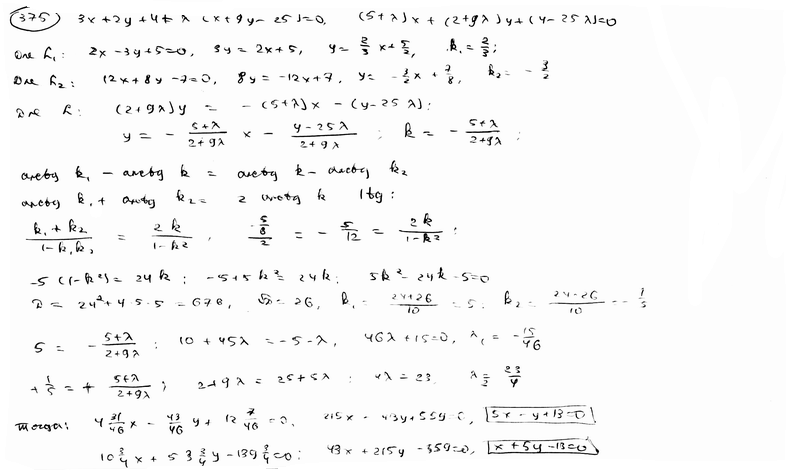 375) 3x+2y+4+λ(x+9y-25)=0, (5+λ)x+(2+9λ)y+(4-25λ)=0
Для L₁: 2x-3y+5=0, 3y=2x+5, y=2/3x+5/2, k₁=2/3;
Для L₂: 12x+8y-7=0, 8y=-12x+7, y=-3/2x+7/8, k₂=-3/2
Для L: (2+9λ)y = -(5+λ)x-(4-25λ);
y=-(5+λ)/(2+9λ) x - (4-25λ)/(2+9λ); k=-(5+λ)/(2+9λ);
arctg k₁ - arctg k = arctg k - arctg k₂
arctg k₁ + arctg k₂ = 2 arctg k | tg:
(k₁+k₂)/(1-k₁k₂) = 2k/(1-k²), (-5/8)/2 = -5/12 = 2k/(1-k²);
-5(1-k²)=24k; -5+5k²=24k; 5k²-24k-5=0
D=24²+4·5·5=676, √D=26, k₁=(24+26)/10=5; k₂=(24-26)/10=-1/5
5=-(5+λ)/(2+9λ); 10+45λ=-5-λ, 46λ+15=0, λ₁=-15/46
+1/5=+(5+λ)/(2+9λ); 2+9λ=25+5λ; 4λ=23, λ₂=23/4
Тогда: 4 31/46 x - 43/46 y + 12 7/46 = 0, 215x-43y+559=0, 5x-y+13=0
10 3/4 x + 53 3/4 y - 139 3/4 = 0; 43x+215y-559=0, x+5y-13=0